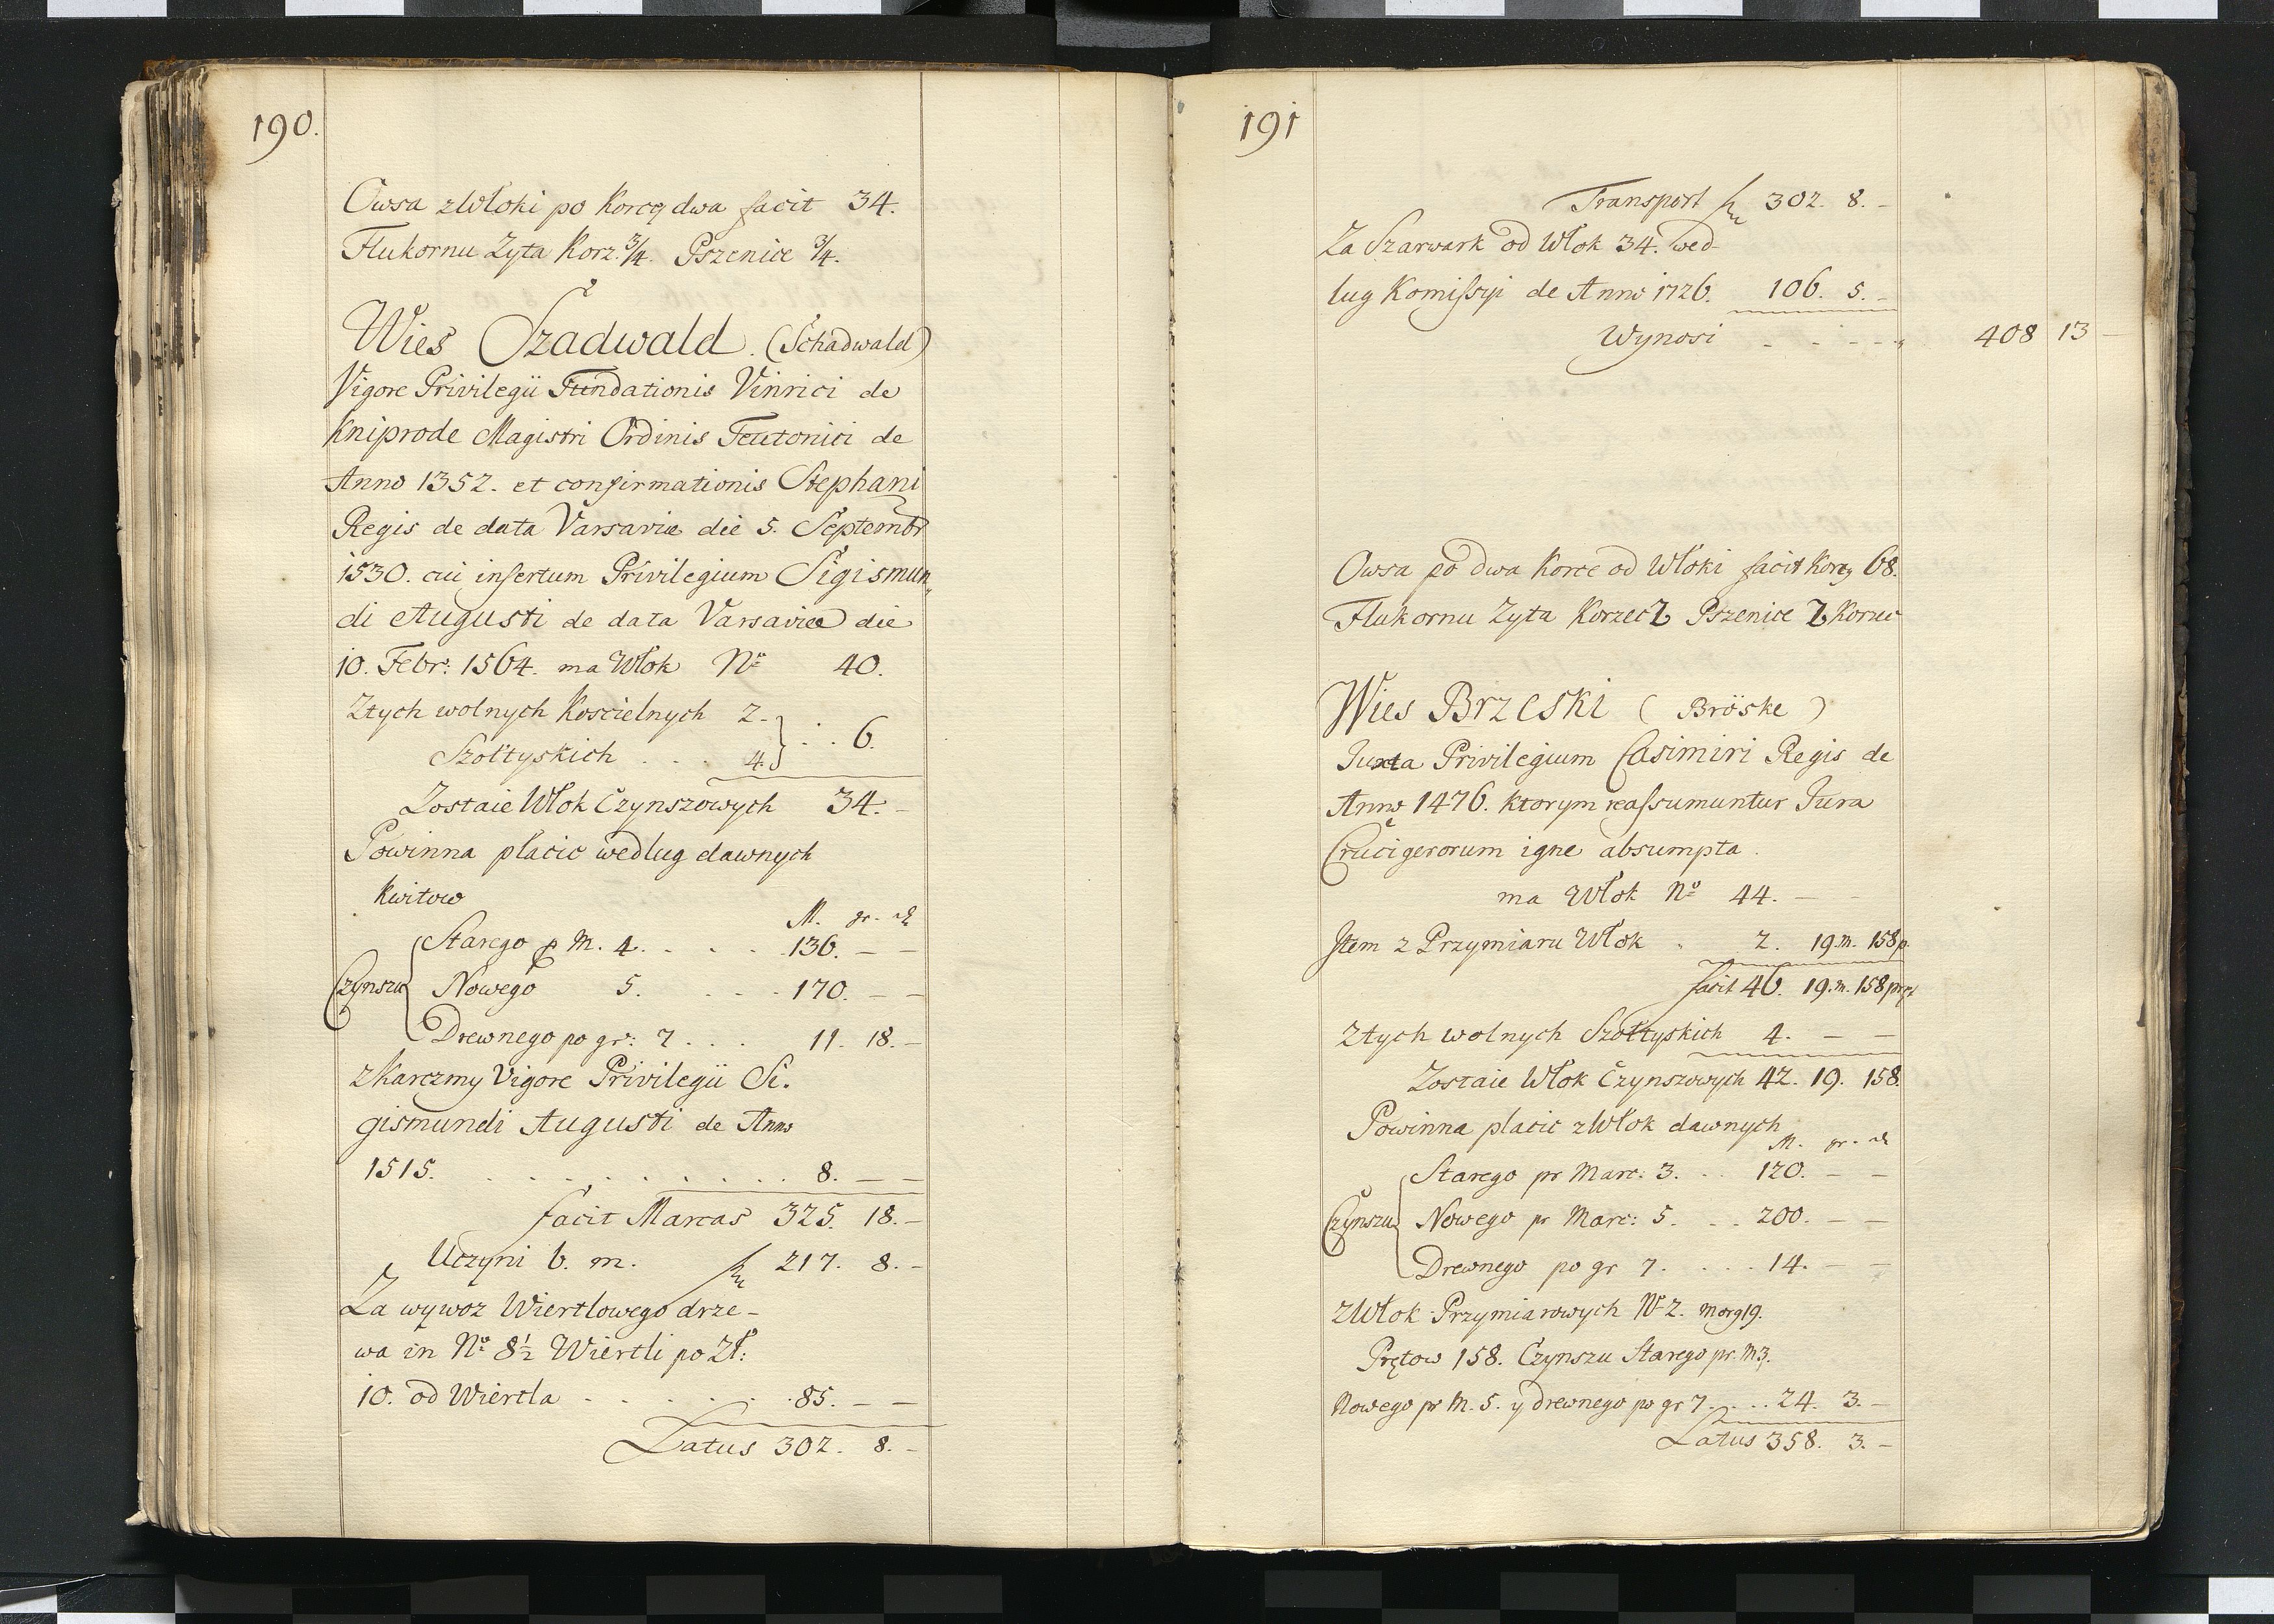 190.
Owsa z Włoki po Korcy dwa facit 34.
Flukornu Zyta Korz. 3/4. Pszenice 3/4.
Wies Szadwald. (Schadwald)
Vigore Privilegii Fundationis Vinrici de
Kniprode Magistri Ordinis Teutonici de
Anno 1352. et confirmationis Stephani
Regis de data Varsaviæ die 5. Septembr
1530. cui insertum Privilegium Sigismun„
di Augusti de data Varsaviæ die
10. Febr: 1564. ma Włok No 40.
Z tych wolnych Koscielnych 2. } . . 6.
Szołtyskich . . . 4.
Zostaie Włok Czynszowych 34. -
Powinna płacic według dawnych
Kwitow
M. gr. ₰
Czynszu { Starego p M. 4. . . . . 136. — —
Nowego 5. . . . . 170. — —
Drewnego po gr: 7 . . . 11. 18. -
z Karczmy Vigore Privilegii Si.
gismundi Augusti de Anno
1515. . . . . . . . . . . 8. — —
facit Marcas 325. 18. -
Uczyni b. m. 217. 8. -
Za wywoz Wiertlowego drze-
wa in No 8½ Wiertli po Zł:
10. od Wiertla . . . . . . 85. — —
Latus 302. 8. -
191
Transport 302. 8. -
Za Szarwark od Włok 34. wed-
lug Komissyi de Anno 1726. 106. 5. -
Wynosi - - - - 408 13 -
Owsa po dwa Korce od Włoki facit Korcy 68.
Flukornu Zyta Korzec 1 Pszenice 1 Korzec
Wies Brzeski (Bröske)
Juxta Privilegium Casimiri Regis de
Anno 1476. ktorym reassumuntur Jura
Crucigerorum igne absumpta.
ma Włok No 44. — -
Item z Przymiaru Włok . 2. 19. m. 158 p.
facit 46. 19. m. 158 pręt
Z tych wolnych Szołtyskich 4. — —
Zostaie Włok Czynszowych 42. 19. 158.
Powinna płacic z Włok dawnych
M. gr. ₰
Czynszu { Starego pr Marc: 3. . . 120. — —
Nowego pr Marc: 5. . . 200. — —
Drewnego po gr 7. . . . 14. — —
z Włok Przymiarowych No 2. morg 19.
Prętow 158. Czynszu Starego pr. M 3.
Nowego pr M. 5. y drewnego po gr 7. . . . 24. 3. -
Latus 358. 3. -